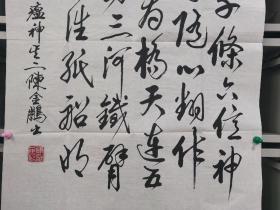 千條六億神
随心翻作
為橋天連五
三河鐵臂
往紙船明
瘟神其二陳金鵬书